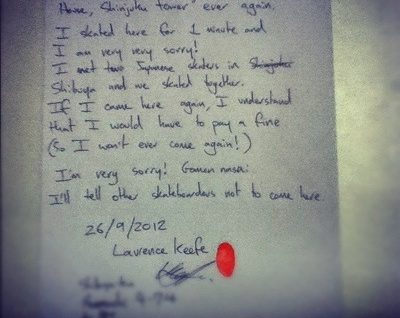 House, Shinjuku tower" ever again.
I skated here for 1 minute and
I am very very sorry!
I met two Japanese skaters in Shinjuku
Shibuya and we skated together.
If I came here again, I understand
that I would have to pay a fine
(So I won't ever come again!)
I'm very sorry! Gomen nasai
I'll tell other skateboarders not to come here.
26/9/2012
Laurence Keefe